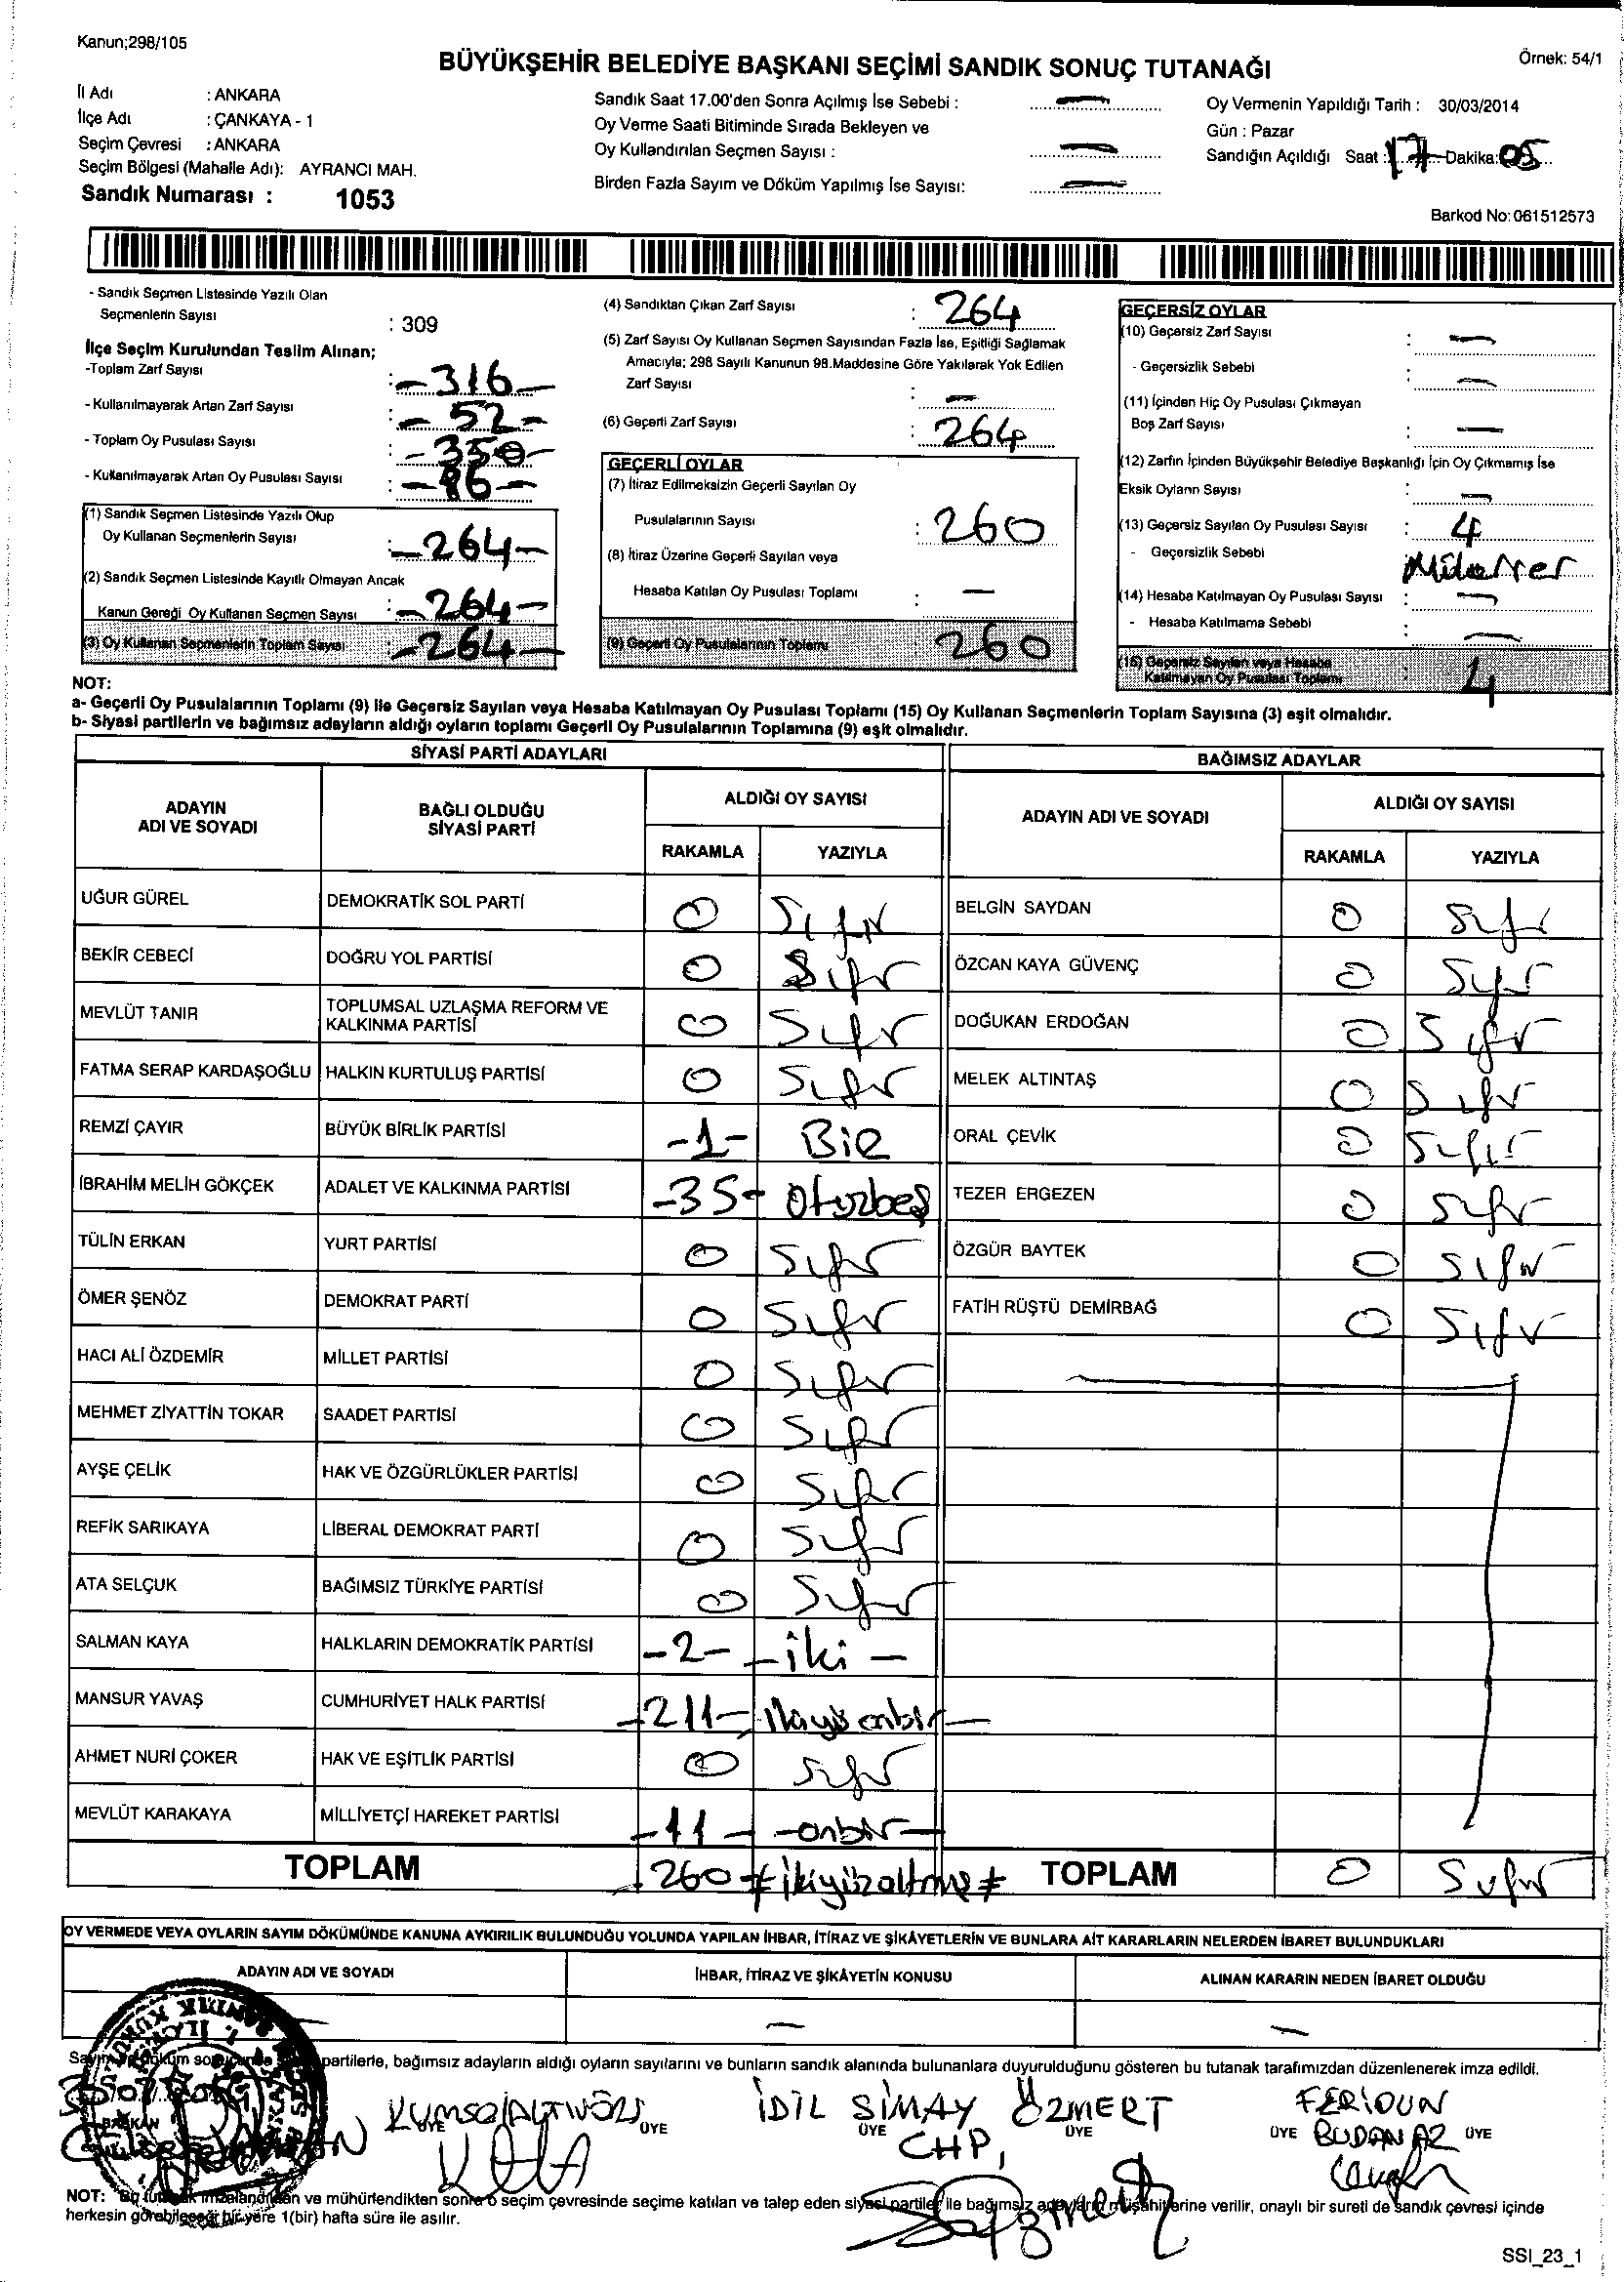 Kanun;298/105
BÜYÜKŞEHİR BELEDİYE BAŞKANI SEÇİMİ SANDIK SONUÇ TUTANAĞI
Örnek: 54/1
İl Adı : ANKARA
İlçe Adı : ÇANKAYA - 1
Seçim Çevresi : ANKARA
Seçim Bölgesi (Mahalle Adı): AYRANCI MAH.
Sandık Numarası : 1053
Sandık Saat 17.00'den Sonra Açılmış İse Sebebi : —
Oy Verme Saati Bitiminde Sırada Bekleyen ve
Oy Kullandırılan Seçmen Sayısı : —
Birden Fazla Sayım ve Döküm Yapılmış İse Sayısı: —
Oy Vermenin Yapıldığı Tarih : 30/03/2014
Gün : Pazar
Sandığın Açıldığı Saat : 17 Dakika: 05
Barkod No: 061512573
- Sandık Seçmen Listesinde Yazılı Olan
Seçmenlerin Sayısı : 309
İlçe Seçim Kurulundan Teslim Alınan;
-Toplam Zarf Sayısı : -316-
- Kullanılmayarak Artan Zarf Sayısı : -52-
- Toplam Oy Pusulası Sayısı : -350-
- Kullanılmayarak Artan Oy Pusulası Sayısı : -86-
(1) Sandık Seçmen Listesinde Yazılı Olup
Oy Kullanan Seçmenlerin Sayısı : -264-
(2) Sandık Seçmen Listesinde Kayıtlı Olmayan Ancak
Kanun Gereği Oy Kullanan Seçmen Sayısı : -264-
(3) Oy Kullanan Seçmenlerin Toplam Sayısı : -264-
(4) Sandıktan Çıkan Zarf Sayısı : 264
(5) Zarf Sayısı Oy Kullanan Seçmen Sayısından Fazla İse, Eşitliği Sağlamak
Amacıyla; 298 Sayılı Kanunun 98.Maddesine Göre Yakılarak Yok Edilen
Zarf Sayısı : —
(6) Geçerli Zarf Sayısı : 264
GEÇERLİ OYLAR
(7) İtiraz Edilmeksizin Geçerli Sayılan Oy
Pusulalarının Sayısı : 260
(8) İtiraz Üzerine Geçerli Sayılan veya
Hesaba Katılan Oy Pusulası Toplamı : —
(9) Geçerli Oy Pusulalarının Toplamı 260
GEÇERSİZ OYLAR
(10) Geçersiz Zarf Sayısı : —
- Geçersizlik Sebebi : —
(11) İçinden Hiç Oy Pusulası Çıkmayan
Boş Zarf Sayısı : —
(12) Zarfın İçinden Büyükşehir Belediye Başkanlığı İçin Oy Çıkmamış İse
Eksik Oyların Sayısı : —
(13) Geçersiz Sayılan Oy Pusulası Sayısı : 4
- Geçersizlik Sebebi
(14) Hesaba Katılmayan Oy Pusulası Sayısı : —
- Hesaba Katılmama Sebebi : —
(15) Geçersiz Sayılan veya Hesaba
Katılmayan Oy Pusulası Toplamı : 4
NOT:
a- Geçerli Oy Pusulalarının Toplamı (9) ile Geçersiz Sayılan veya Hesaba Katılmayan Oy Pusulası Toplamı (15) Oy Kullanan Seçmenlerin Toplam Sayısına (3) eşit olmalıdır.
b- Siyasi partilerin ve bağımsız adayların aldığı oyların toplamı Geçerli Oy Pusulalarının Toplamına (9) eşit olmalıdır.
SİYASİ PARTİ ADAYLARI
ADAYIN ADI VE SOYADI BAĞLI OLDUĞU SİYASİ PARTİ ALDIĞI OY SAYISI
RAKAMLA YAZIYLA
UĞUR GÜREL DEMOKRATİK SOL PARTİ 0 Sıfır
BEKİR CEBECİ DOĞRU YOL PARTİSİ 0 Sıfır
MEVLÜT TANIR TOPLUMSAL UZLAŞMA REFORM VE KALKINMA PARTİSİ 0 Sıfır
FATMA SERAP KARDAŞOĞLU HALKIN KURTULUŞ PARTİSİ 0 Sıfır
REMZİ ÇAYIR BÜYÜK BİRLİK PARTİSİ -1- Bir
İBRAHİM MELİH GÖKÇEK ADALET VE KALKINMA PARTİSİ -35- Otuzbeş
TÜLİN ERKAN YURT PARTİSİ 0 Sıfır
ÖMER ŞENÖZ DEMOKRAT PARTİ 0 Sıfır
HACI ALİ ÖZDEMİR MİLLET PARTİSİ 0 Sıfır
MEHMET ZİYATTİN TOKAR SAADET PARTİSİ 0 Sıfır
AYŞE ÇELİK HAK VE ÖZGÜRLÜKLER PARTİSİ 0 Sıfır
REFİK SARIKAYA LİBERAL DEMOKRAT PARTİ 0 Sıfır
ATA SELÇUK BAĞIMSIZ TÜRKİYE PARTİSİ 0 Sıfır
SALMAN KAYA HALKLARIN DEMOKRATİK PARTİSİ -2- -iki-
MANSUR YAVAŞ CUMHURİYET HALK PARTİSİ -211- ikiyüz onbir-
AHMET NURİ ÇOKER HAK VE EŞİTLİK PARTİSİ 0 Sıfır
MEVLÜT KARAKAYA MİLLİYETÇİ HAREKET PARTİSİ -11- -onbir-
TOPLAM 260 # ikiyüzaltmış #
BAĞIMSIZ ADAYLAR
ADAYIN ADI VE SOYADI ALDIĞI OY SAYISI
RAKAMLA YAZIYLA
BELGİN SAYDAN 0 Sıfır
ÖZCAN KAYA GÜVENÇ 0 Sıfır
DOĞUKAN ERDOĞAN 0 Sıfır
MELEK ALTINTAŞ 0 Sıfır
ORAL ÇEVİK 0 Sıfır
TEZER ERGEZEN 0 Sıfır
ÖZGÜR BAYTEK 0 Sıfır
FATİH RÜŞTÜ DEMİRBAĞ 0 Sıfır
TOPLAM 0 Sıfır
OY VERMEDE VEYA OYLARIN SAYIM DÖKÜMÜNDE KANUNA AYKIRILIK BULUNDUĞU YOLUNDA YAPILAN İHBAR, İTİRAZ VE ŞİKÂYETLERİN VE BUNLARA AİT KARARLARIN NELERDEN İBARET BULUNDUKLARI
ADAYIN ADI VE SOYADI İHBAR, İTİRAZ VE ŞİKÂYETİN KONUSU ALINAN KARARIN NEDEN İBARET OLDUĞU
— — —
partilerle, bağımsız adayların aldığı oyların sayılarını ve bunların sandık alanında bulunanlara duyurulduğunu gösteren bu tutanak tarafımızdan düzenlenerek imza edildi.
İDİL SİMAY ÖZMERT FERİDUN
BAŞKAN ÜYE ÜYE ÜYE ÜYE ÜYE BUDANAZ ÜYE
CHP,
NOT: Bu tutanak imzalandıktan ve mühürlendikten sonra o seçim çevresinde seçime katılan ve talep eden siyasi partiler ile bağımsız adayların müşahitlerine verilir, onaylı bir sureti de sandık çevresi içinde
herkesin görebileceği bir yere 1(bir) hafta süre ile asılır.
SSI_23_1